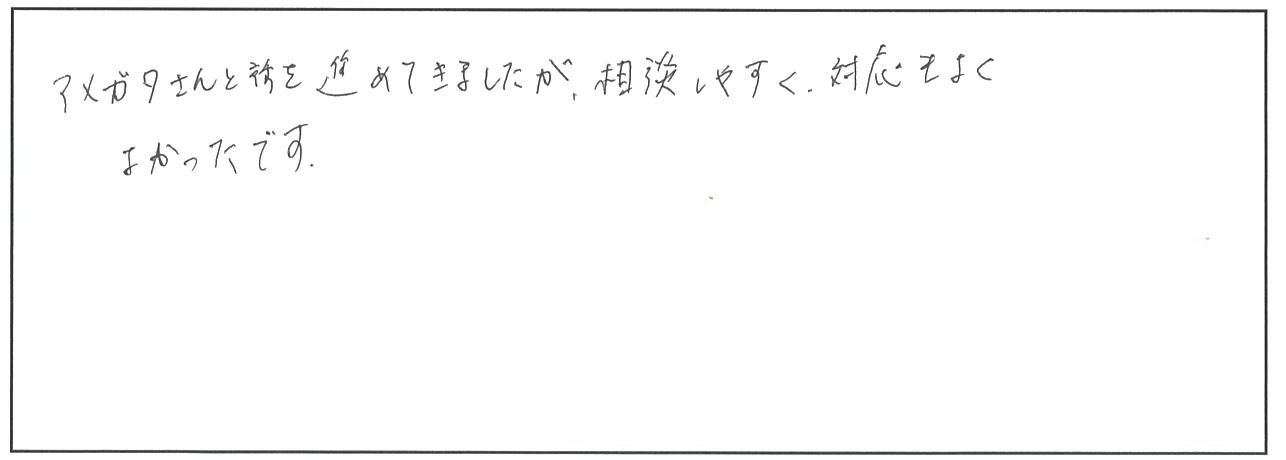 アメガタさんと話を進めてきましたが、相談しやすく、対応もよく
よかったです。